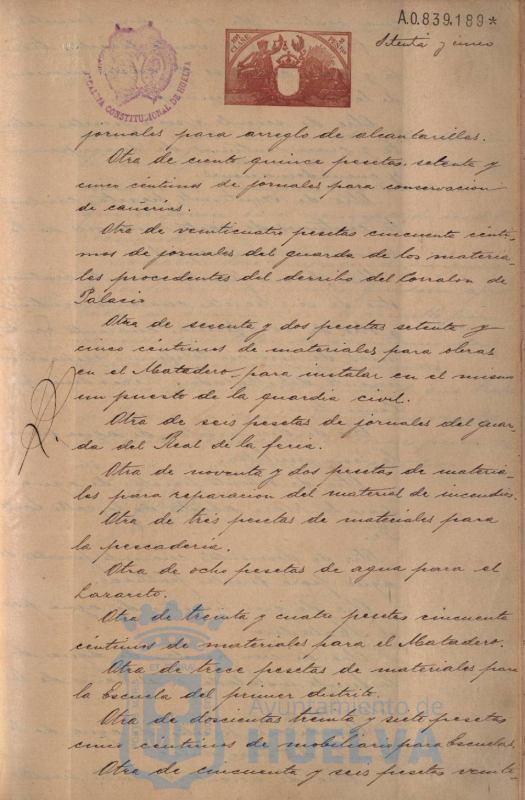 A.0.839.189*
Setenta y cinco
ALCALDIA CONSTITUCIONAL DE HUELVA
11ª CLASE
PESETAS
jornales para arreglo de alcantarillas.
Otra de ciento quince pesetas, setenta y
cinco céntimos de jornales para conservacion
de cañerías.
Otra de veinticuatro pesetas cincuenta cénti-
mos de jornales del guarda de los materia-
les procedentes del derribo del Corralon de
Palacio
Otra de sesenta y dos pesetas setenta y
cinco céntimos de materiales para obras
en el Matadero, para instalar en el mismo
un puesto de la guardia civil.
Otra de seis pesetas de jornales del guar-
da del Real de la feria.
Otra de noventa y dos pesetas de materia-
les para reparacion del material de incendios.
Otra de tres pesetas de materiales para
la pescadería.
Otra de ocho pesetas de agua para el
Lazareto.
Otra de treinta y cuatro pesetas cincuenta
céntimos de materiales para el Matadero.
Otra de trece pesetas de materiales para
la Escuela del primer distrito.
Otra de doscientas treinta y siete pesetas
cinco céntimos de mobiliario para Escuelas.
Otra de cincuenta y seis pesetas veinte-
Ayuntamiento de
HUELVA